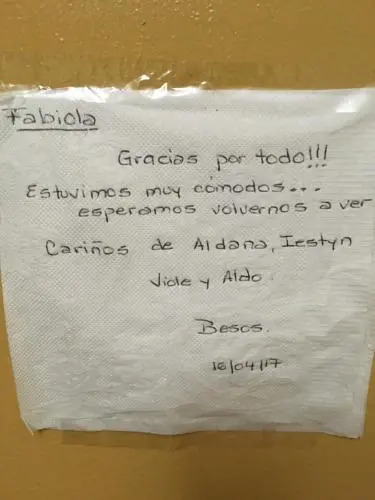 Fabiola
Gracias por todo!!!
Estuvimos muy cómodos...
esperamos volvernos a ver
Cariños de Aldana, Iestyn
Viole y Aldo.
Besos.
16/04/17